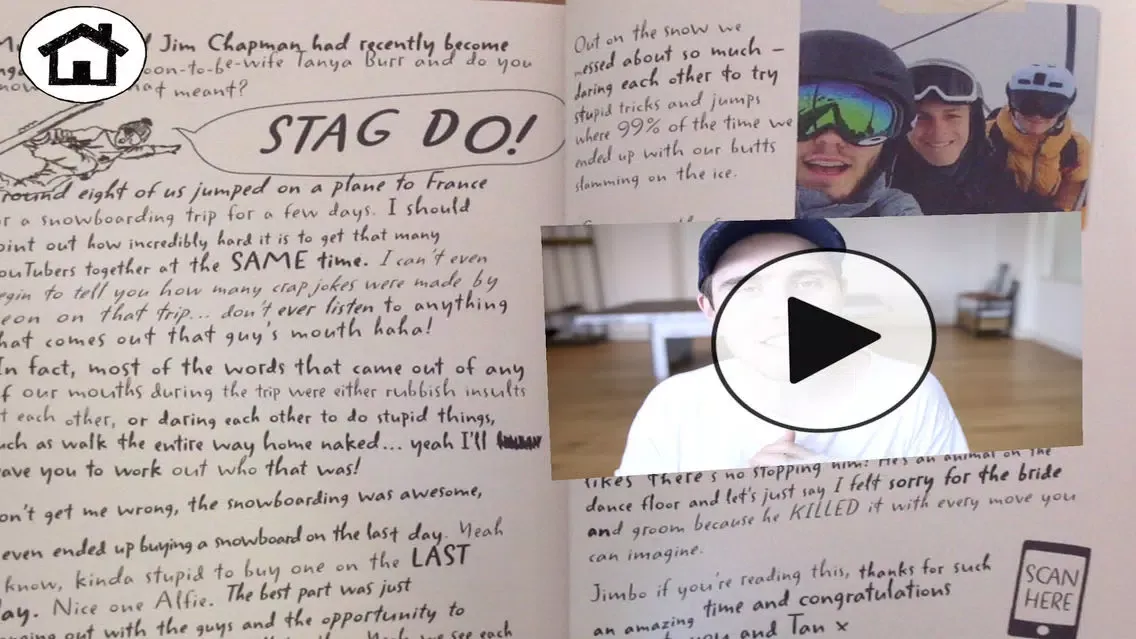 Jim Chapman had recently become
soon-to-be-wife Tanya Burr and do you
meant?
STAG DO!
eight of us jumped on a plane to France
a snowboarding trip for a few days. I should
out how incredibly hard it is to get that many
together at the SAME time. I can't even
to tell you how many crap jokes were made by
on that trip... don't ever listen to anything
comes out that guy's mouth haha!
In fact, most of the words that came out of any
our mouths during the trip were either rubbish insults
each other, or daring each other to do stupid things,
as walk the entire way home naked... yeah I'll
you to work out who that was!
get me wrong, the snowboarding was awesome,
even ended up buying a snowboard on the last day. Yeah
know, kinda stupid to buy one on the LAST
Nice one Alfie. The best part was just
out with the guys and the opportunity to
see each
Out on the snow we
messed about so much –
daring each other to try
stupid tricks and jumps
where 99% of the time we
ended up with our butts
slamming on the ice.
likes There's no stopping him! He's an animal on the
dance floor and let's just say I felt sorry for the bride
and groom because he KILLED it with every move you
can imagine.
Jimbo if you're reading this, thanks for such
an amazing time and congratulations
you and Tan x
SCAN
HERE